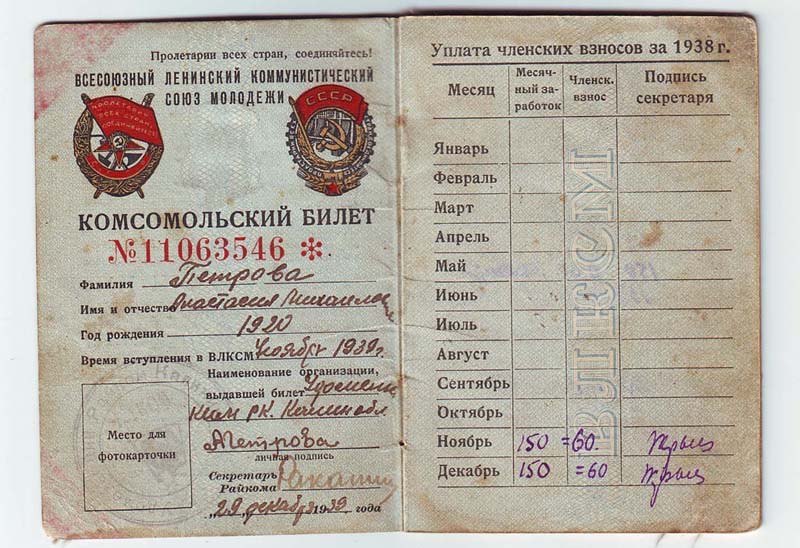 Пролетарии всех стран, соединяйтесь!
ВСЕСОЮЗНЫЙ ЛЕНИНСКИЙ КОММУНИСТИЧЕСКИЙ
СОЮЗ МОЛОДЕЖИ
ПРОЛЕТАРИИ
ВСЕХ СТРАН
СОЕДИНЯЙТЕСЬ
СССР
КОМСОМОЛЬСКИЙ БИЛЕТ
№ 11063546 *
Фамилия Петрова
Имя и отчество Анастасия Михайловна
Год рождения 1920
Время вступления в ВЛКСМ Ноябрь 1939г.
Наименование организации,
выдавшей билет
РК. Калин обл.
Место для
фотокарточки
АПетрова
личная подпись
Секретарь
Райкома
„29" декабря 1939 года
Уплата членских взносов за 1938 г.
Месяц Месяч-ный за-работок Членск. взнос Подпись секретаря
ВЛКСМ
Январь
Февраль
Март
Апрель
Май
Июнь
Июль
Август
Сентябрь
Октябрь
Ноябрь 150 =60.
Декабрь 150 =60